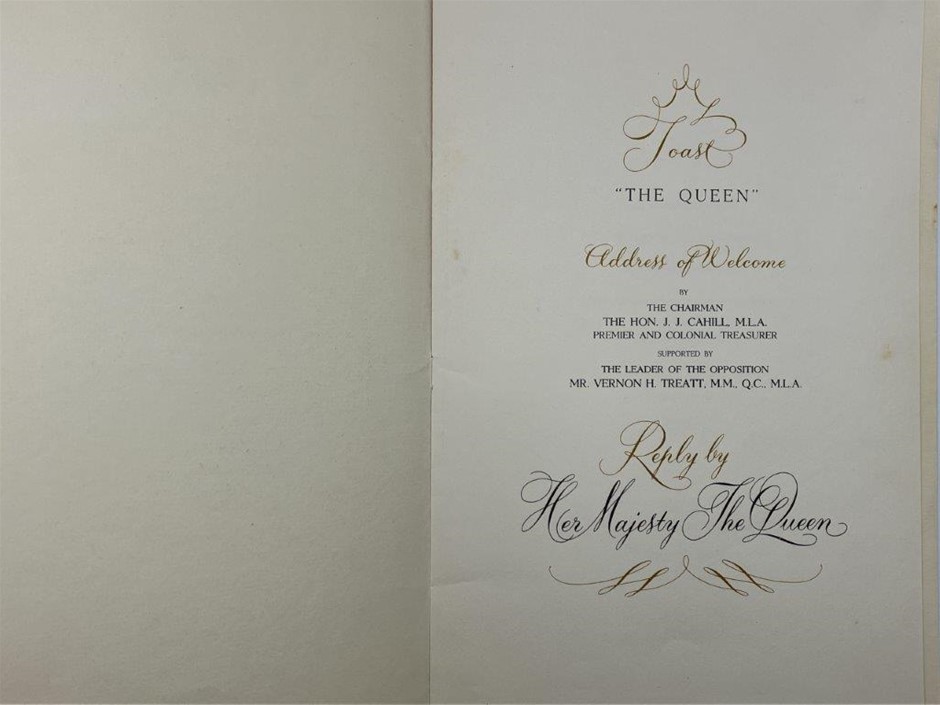 Toast
"THE QUEEN"
Address of Welcome
BY
THE CHAIRMAN
THE HON. J. J. CAHILL, M.L.A.
PREMIER AND COLONIAL TREASURER
SUPPORTED BY
THE LEADER OF THE OPPOSITION
MR. VERNON H. TREATT, M.M., Q.C., M.L.A.
Reply by
Her Majesty The Queen